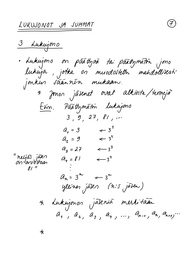 LUKUJONOT JA SUMMAT
7
3 Lukujono
• Lukujono on päättyvä tai päättymätön jono
lukuja, jotka on muodostettu mahdollisesti
jonkin säännön mukaan.
* Jonon jäsenet ovat alkioita/termejä
Esim. Päättymätön lukujono
3, 9, 27, 81, ...
a₁ = 3 ← 3¹
a₂ = 9 ← 3²
a₃ = 27 ← 3³
"neljäs jäsen on
81"
a₄ = 81 ← 3⁴
⋮
aₙ = 3ⁿ ← 3ⁿ
yleinen jäsen (n:s jäsen)
* Lukujonon jäseniä merkitään
a₁, a₂, a₃, a₄, ..., aₙ₋₁, aₙ, aₙ₊₁, ...
*